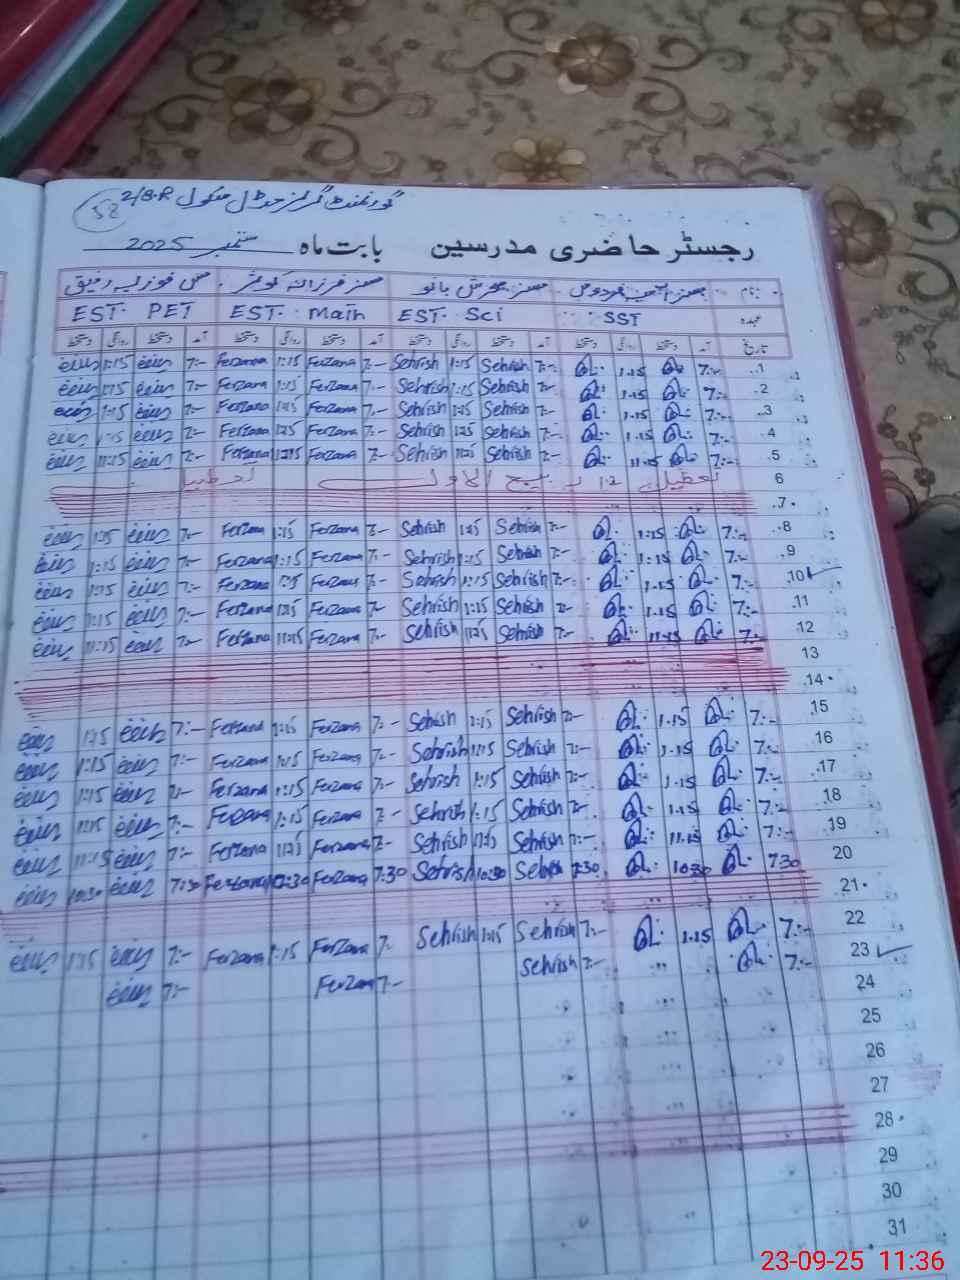 58
گورنمنٹ گرلز مڈل سکول 2/8.R
رجسٹر حاضری مدرسین بابت ماہ ستمبر 2025
نام مسز فردوس مسز سحرش بانو مسز فرزانہ کوثر مس فوزیہ رفیق
عہدہ SST EST. Sci EST. Math EST. PET
تاریخ آمد دستخط روانگی دستخط آمد دستخط روانگی دستخط آمد دستخط روانگی دستخط آمد دستخط روانگی دستخط
1 7:- 1.15 7:- Sehrish 1:15 Sehrish 7:- Ferzana 1:15 Ferzana 7:- 1:15
2 7:- 1.15 7:- Sehrish 1:15 Sehrish 7:- Ferzana 1:15 Ferzana 7:- 1:15
3 7:- 1.15 7:- Sehrish 1:15 Sehrish 7:- Ferzana 1:15 Ferzana 7:- 1:15
4 7:- 1.15 7:- Sehrish 1:15 Sehrish 7:- Ferzana 1:15 Ferzana 7:- 1:15
5 7:- 11.15 7:- Sehrish 11:15 Sehrish 7:- Ferzana 11:15 Ferzana 7:- 11:15
6 تعطیل 12 ربیع الاول تعطیل
7
8 7:- 1.15 7:- Sehrish 1:15 Sehrish 7:- Ferzana 1:15 Ferzana 7:- 1:15
9 7:- 1.15 7:- Sehrish 1:15 Sehrish 7:- Ferzana 1:15 Ferzana 7:- 1:15
10 7:- 1.15 7:- Sehrish 1:15 Sehrish 7:- Ferzana 1:15 Ferzana 7:- 1:15
11 7:- 1.15 7:- Sehrish 1:15 Sehrish 7:- Ferzana 1:15 Ferzana 7:- 1:15
12 7:- 11.15 7:- Sehrish 11:15 Sehrish 7:- Ferzana 11:15 Ferzana 7:- 11:15
13
14
15 7:- 1.15 7:- Sehrish 1:15 Sehrish 7:- Ferzana 1:15 Ferzana 7:- 1:15
16 7:- 1.15 7:- Sehrish 1:15 Sehrish 7:- Ferzana 1:15 Ferzana 7:- 1:15
17 7:- 1.15 7:- Sehrish 1:15 Sehrish 7:- Ferzana 1:15 Ferzana 7:- 1:15
18 7:- 1.15 7:- Sehrish 1:15 Sehrish 7:- Ferzana 1:15 Ferzana 7:- 1:15
19 7:- 11.15 7:- Sehrish 11:15 Sehrish 7:- Ferzana 11:15 Ferzana 7:- 11:15
20 7.30 10.30 7:30 Sehrish 10:30 Sehrish 7:30 Ferzana 10:30 Ferzana 7:30 10:30
21
22 7:- 1.15 7:- Sehrish 1:15 Sehrish 7:- Ferzana 1:15 Ferzana 7:- 1:15
23 7:- 7:- Sehrish 7:- Ferzana 7:-
24
25
26
27
28
29
30
31
23-09-25 11:36